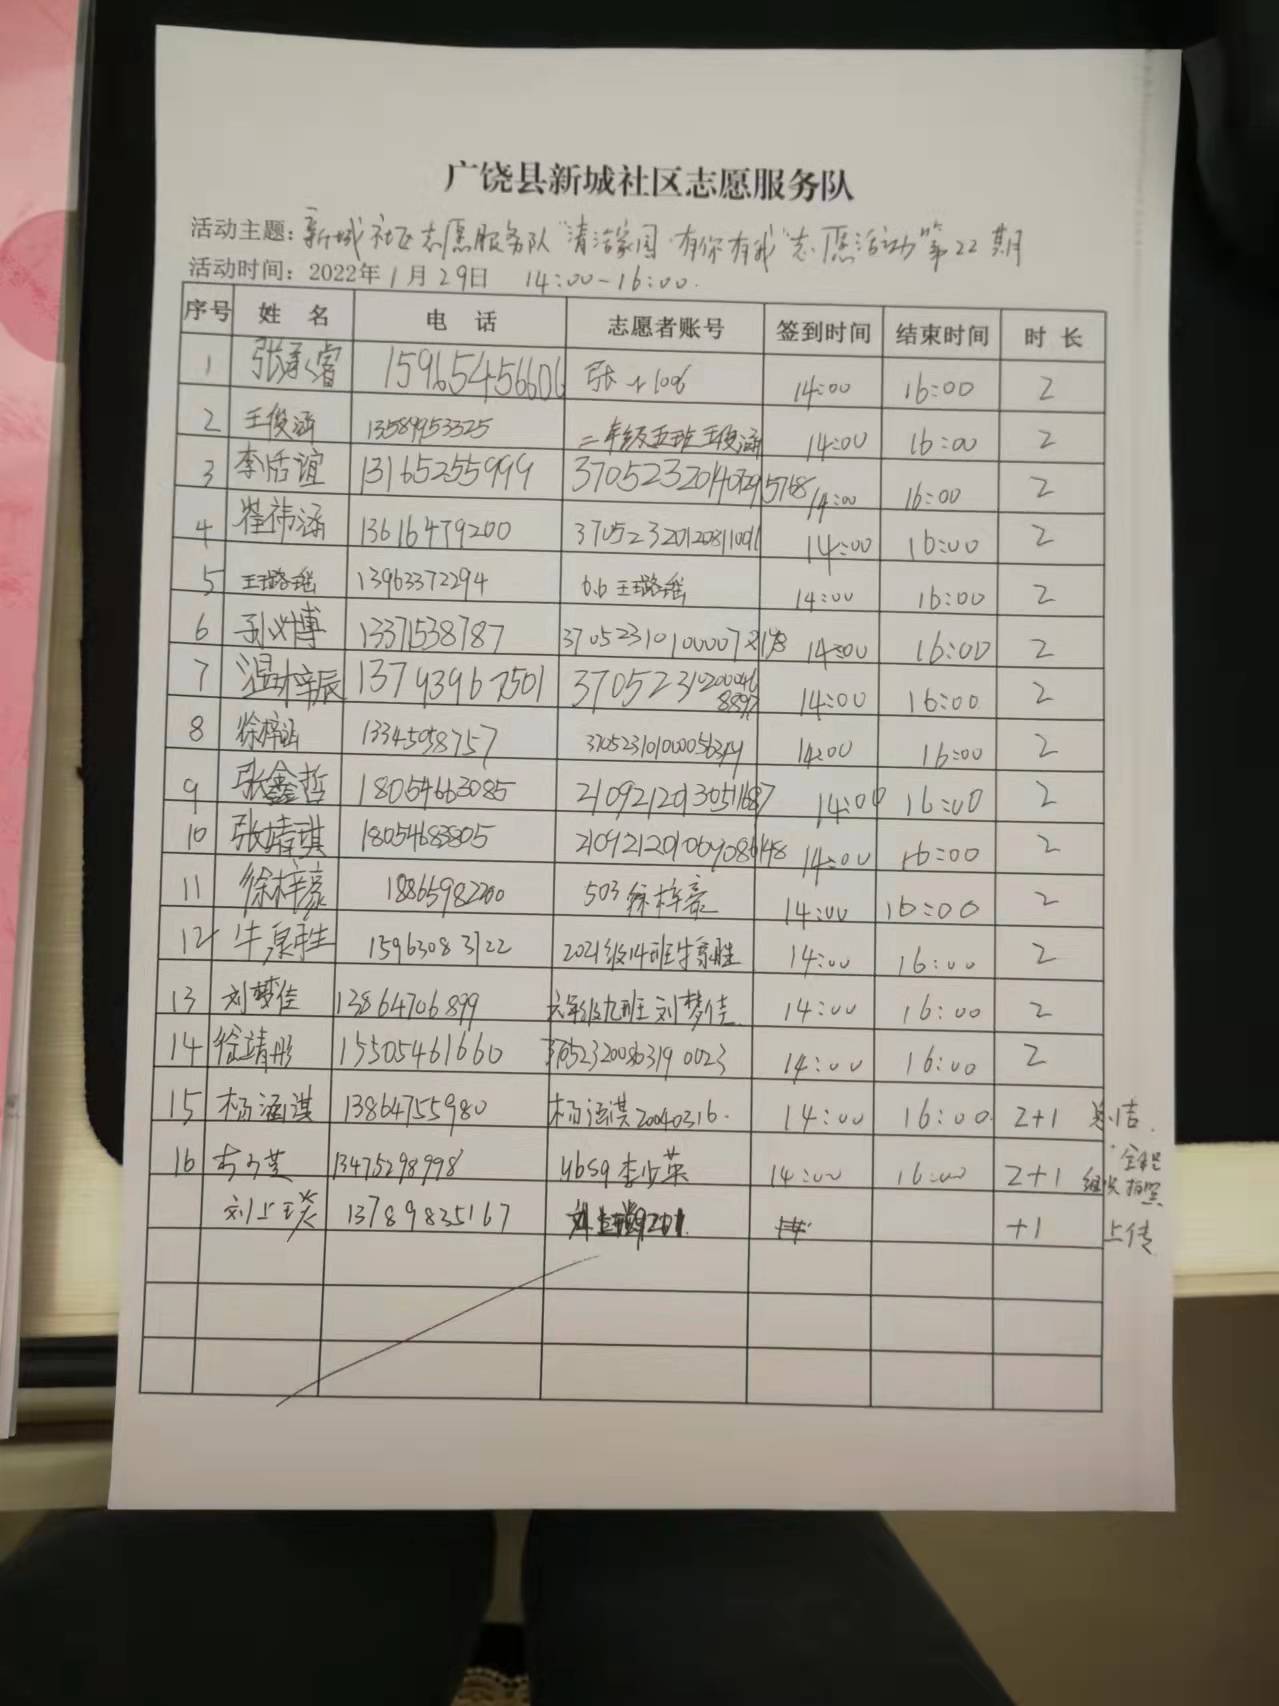 广饶县新城社区志愿服务队
活动主题：新城社区志愿服务队"清洁家园·有你有我"志愿活动第22期
活动时间：2022年1月29日 14:00-16:00.
序号 姓名 电话 志愿者账号 签到时间 结束时间 时长
1 张承睿 15965456606 14:00 16:00 2
2 王俊涵 13589953325 二年级五班王俊涵 14:00 16:00 2
3 李恬谊 13165255999 14:00 16:00 2
4 崔祎涵 13616479200 14:00 16:00 2
5 王璐瑶 13963372294 6.6王璐瑶 14:00 16:00 2
6 13371538787 14:00 16:00 2
7 温梓辰 14:00 16:00 2
8 徐梓涵 13345058757 14:00 16:00 2
9 张鑫哲 18054663085 14:00 16:00 2
10 张靖琪 18054683805 14:00 16:00 2
11 徐梓豪 18865982200 503徐梓豪 14:00 16:00 2
12 牛原胜 15963083122 2021级14班牛原胜 14:00 16:00 2
13 刘梦佳 13864706899 六年级九班刘梦佳 14:00 16:00 2
14 徐靖彤 15505461660 14:00 16:00 2
15 杨涵淇 13864755980 杨涵淇20040316. 14:00 16:00 2+1 总结.
16 李少英 13475298998 李少英 14:00 16:00 2+1 组织 拍照
13789835167 +1 上传